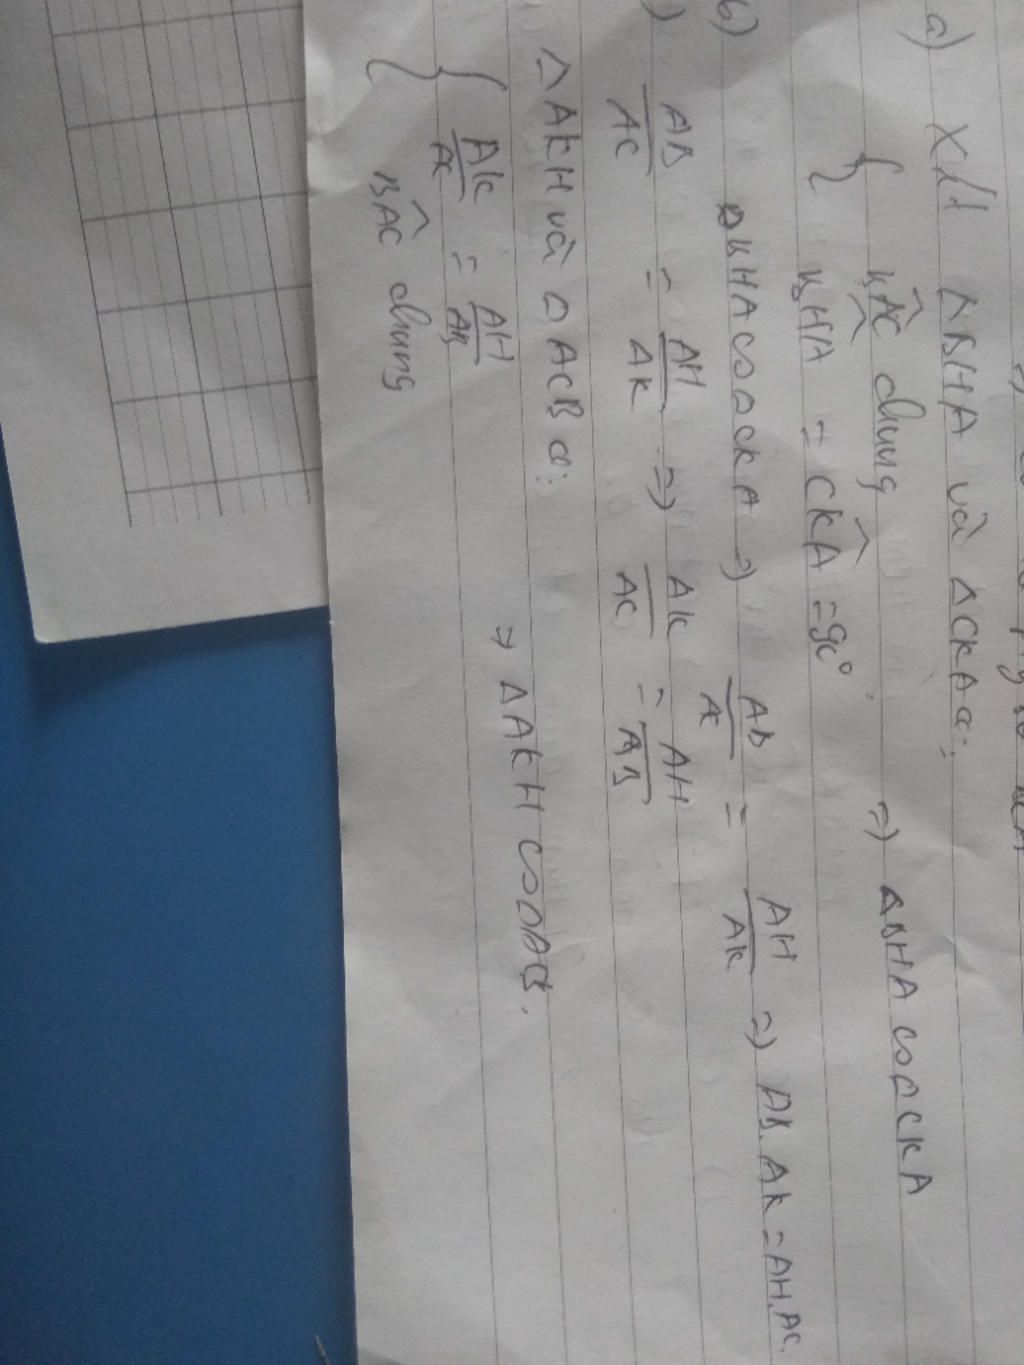 a) Xét ΔBHA và ΔCKA có:
{ BÂC chung
BHA = CKA = 90°
=> ΔBHA ∽ ΔCKA
b) ΔBHA ∽ ΔCKA => AB/AC = AH/AK => AB.AK = AH.AC
) AB/AC = AH/AK => AK/AC = AH/AB
ΔAKH và ΔACB có:
{ AK/AC = AH/AB
BAC chung
=> ΔAKH ∽ ΔACB.